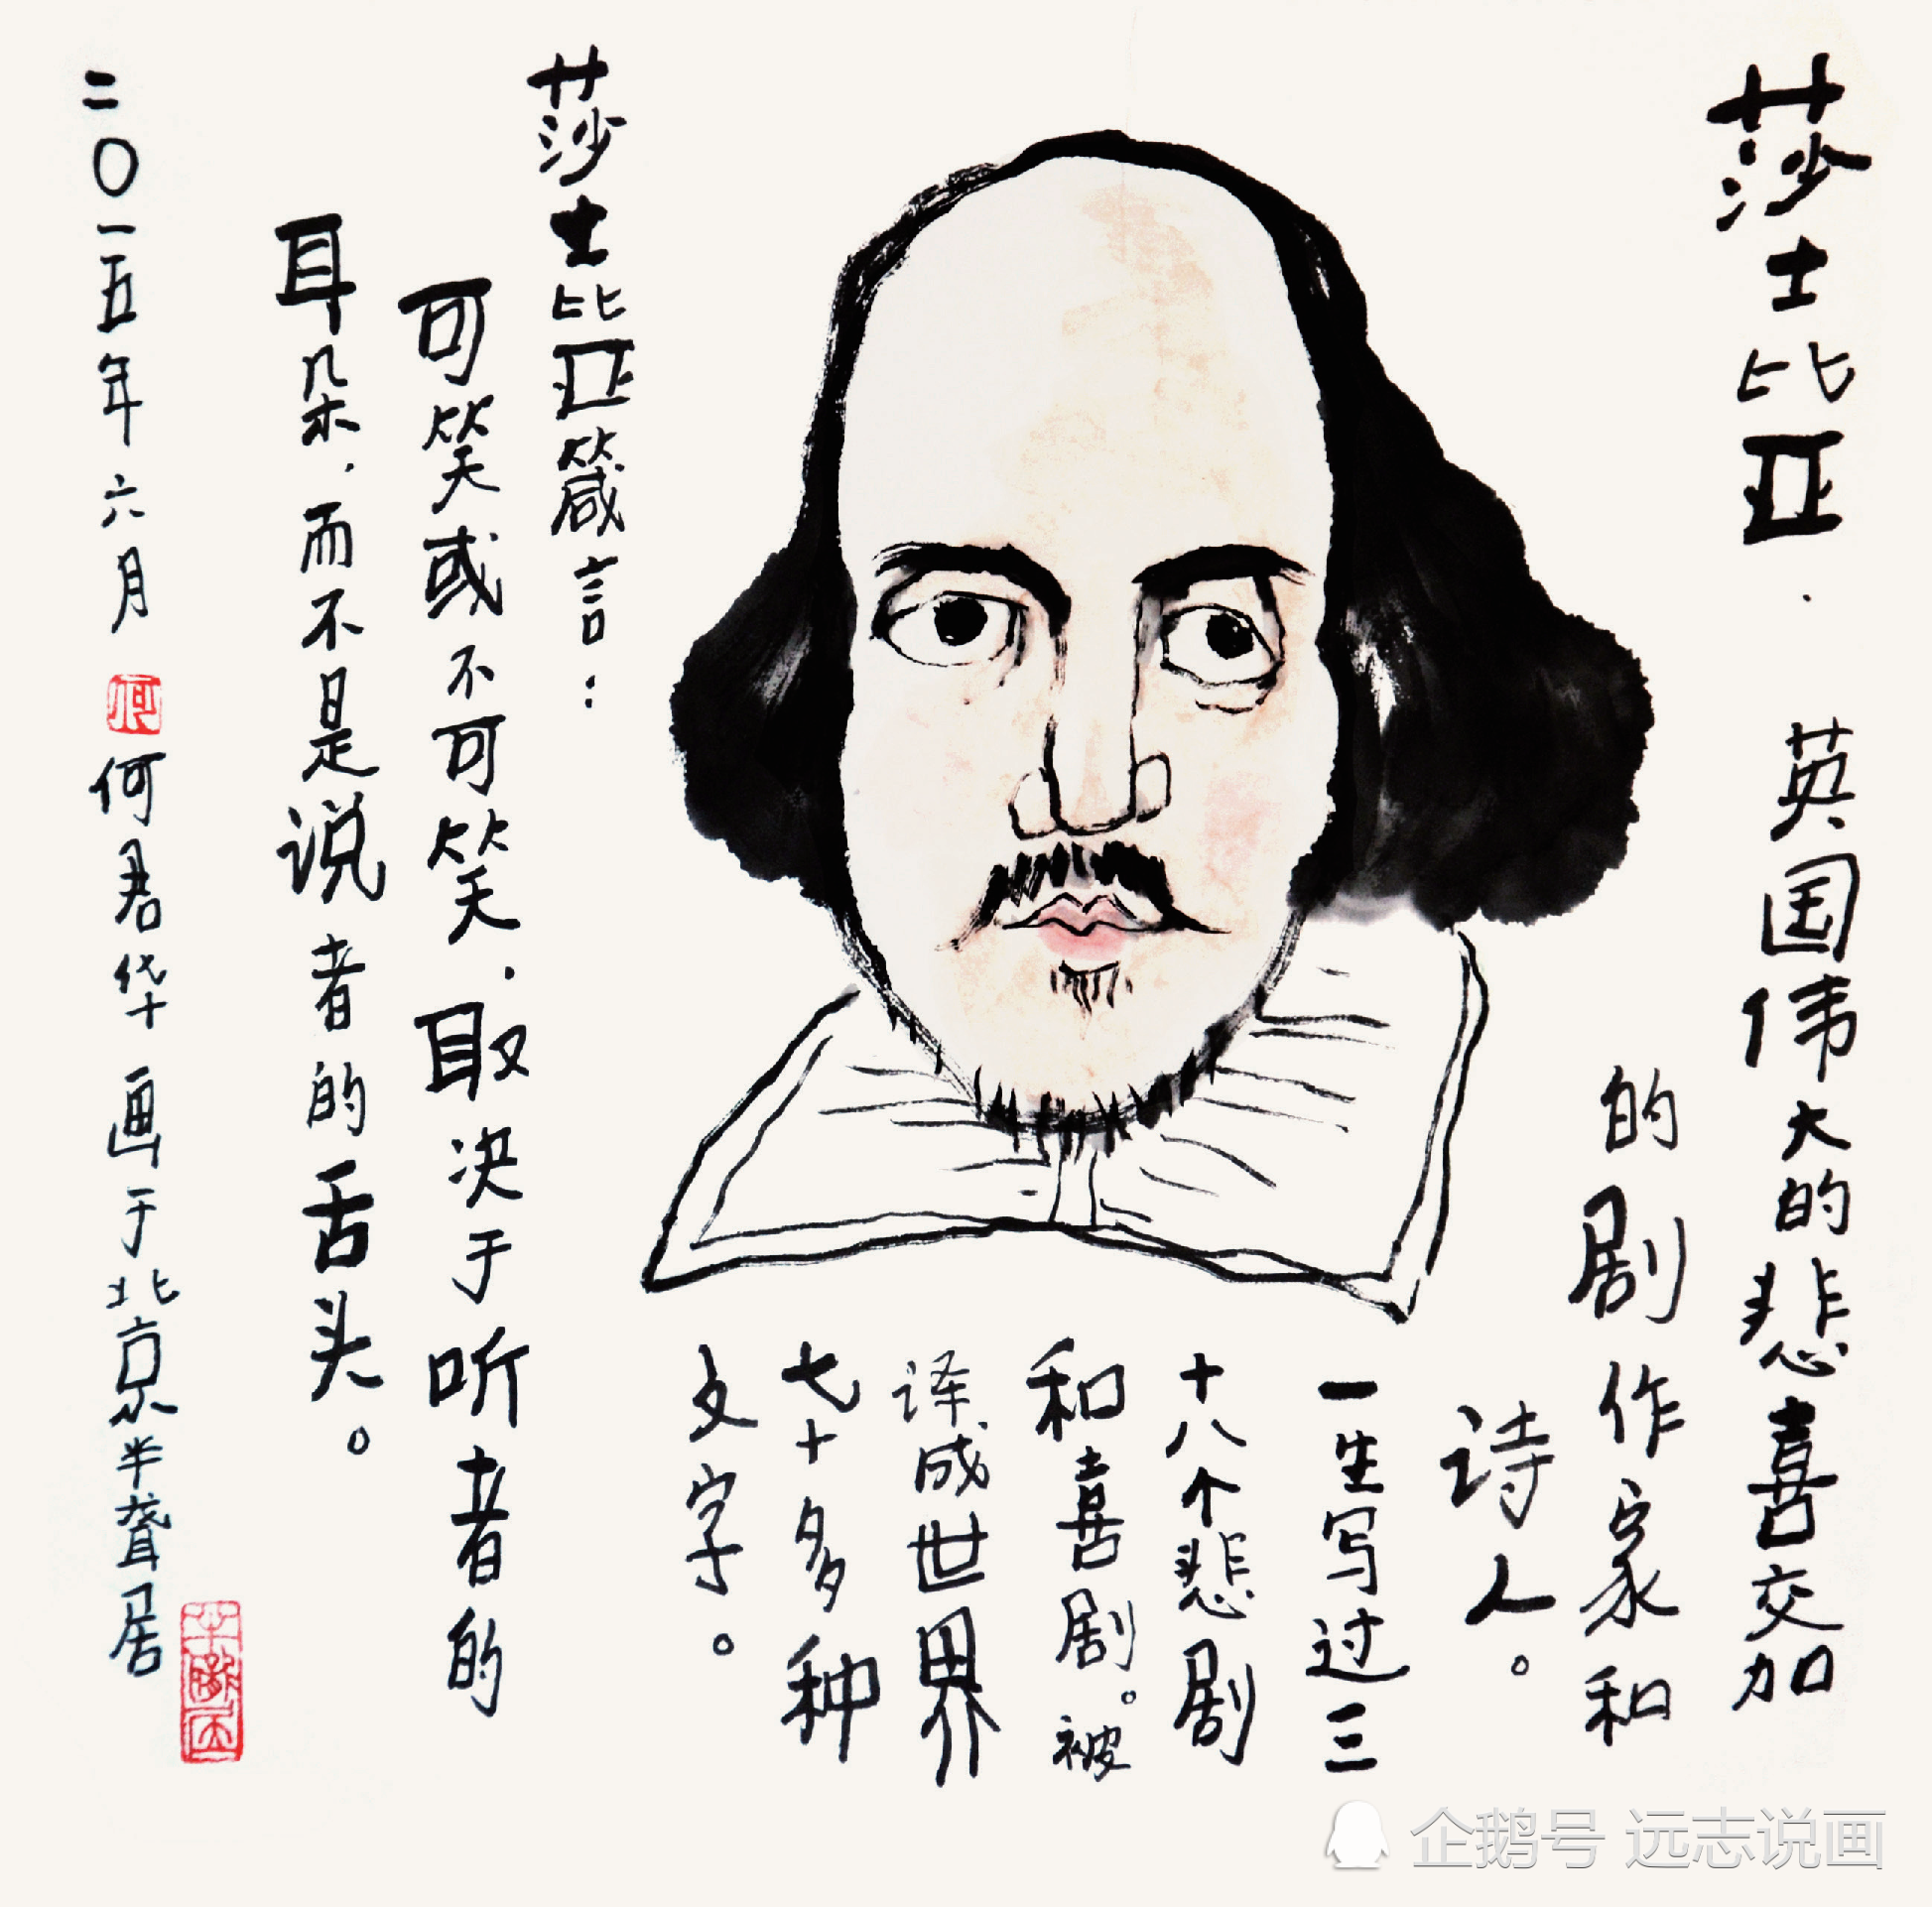 莎士比亚·英国伟大的悲喜交加
的剧作家和
诗人。
一生写过三
十八个悲剧
和喜剧。被
译成世界
七十多种
文字。
莎士比亚箴言：
可笑或不可笑，取决于听者的
耳朵，而不是说者的舌头。
二〇一五年六月 何 何君华画于北京半聋居
企鹅号 远志说画